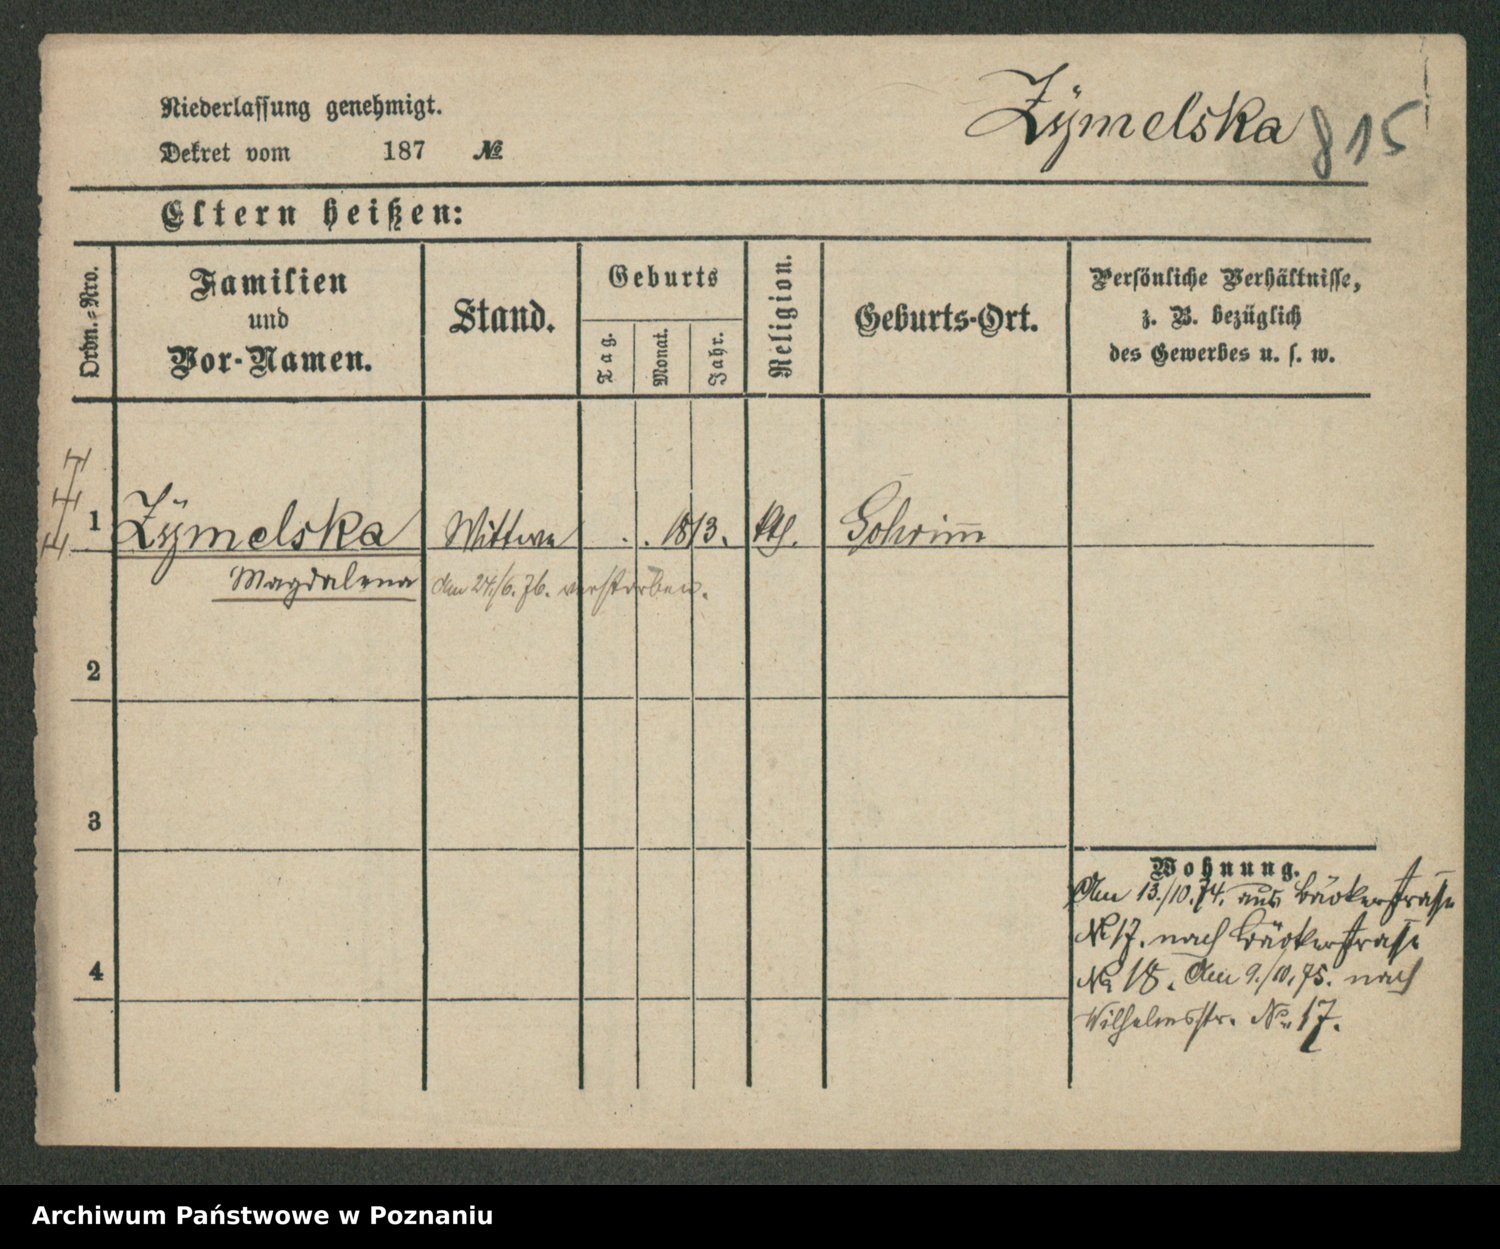 Niederlassung genehmigt.
Dekret vom 187 №
Zÿmelska 815
Eltern heißen:
Ordn.-Nro.
Familien
und
Vor-Namen.
Stand.
Geburts
Tag.
Monat.
Jahr.
Religion.
Geburts-Ort.
Persönliche Verhältnisse,
z. B. bezüglich
des Gewerbes u. s. w.
1 Zÿmelska Wittwe . . 1813. kth.
Magdalena am 24./6. 76. verstorben.
2
3
4
Wohnung.
Am 13./10. 74. aus Bäckerstraße
№ 17. nach Bäckerstraße
№ 18. Am 9./10. 75. nach
Wilhelmsstr. № 17.
Archiwum Państwowe w Poznaniu